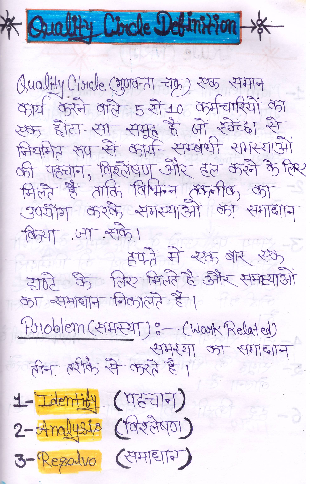 Quality Circle Definition
Quality Circle (गुणवत्ता चक्र) एक समान
कार्य करने वाले 5 से 10 कर्मचारियों का
एक छोटा सा समूह है जो स्वेच्छा से
नियमित रूप से कार्य सम्बंधी समस्याओं
की पहचान, विश्लेषण और हल करने के लिए
मिलते है ताकि विभिन्न तकनीक का
उपयोग करके समस्याओं का समाधान
किया जा सके।
हफ्ते में एक बार एक
घण्टे के लिए मिलते है और समस्याओं
का समाधान निकालते है।
Problem (समस्या) :- (Work Related)
समस्या का समाधान
तीन तरीके से करते है।
1- Identify (पहचान)
2- Analysis (विश्लेषण)
3- Resolve (समाधान)